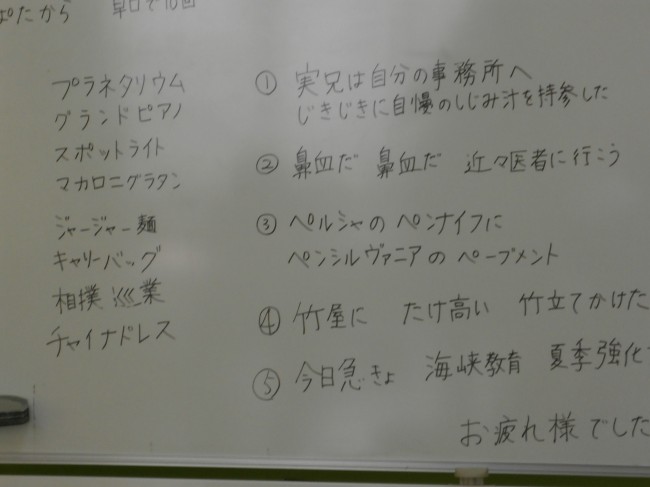 ぱたから 早口で10回
プラネタリウム
グランドピアノ
スポットライト
マカロニグラタン
ジャージャー麺
キャリーバッグ
相撲巡業
チャイナドレス
① 実兄は自分の事務所へ
じきじきに自慢のしじみ汁を持参した
② 鼻血だ 鼻血だ 近々医者に行こう
③ ペルシャのペンナイフに
ペンシルヴァニアのペーブメント
④ 竹屋に たけ高い 竹立てかけた
⑤ 今日急きょ 海峡教育 夏季強化
お疲れ様でした